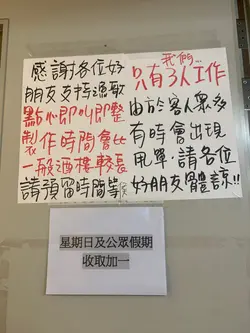 感謝各位好
朋友支持漁歌
點心即叫即整
製作時間會比
一般酒樓較長
請預留時間等
我們
只有3人工作
由於客人眾多
有時會出現
甩單，請各位
好朋友體諒!!
星期日及公眾假期
收取加一